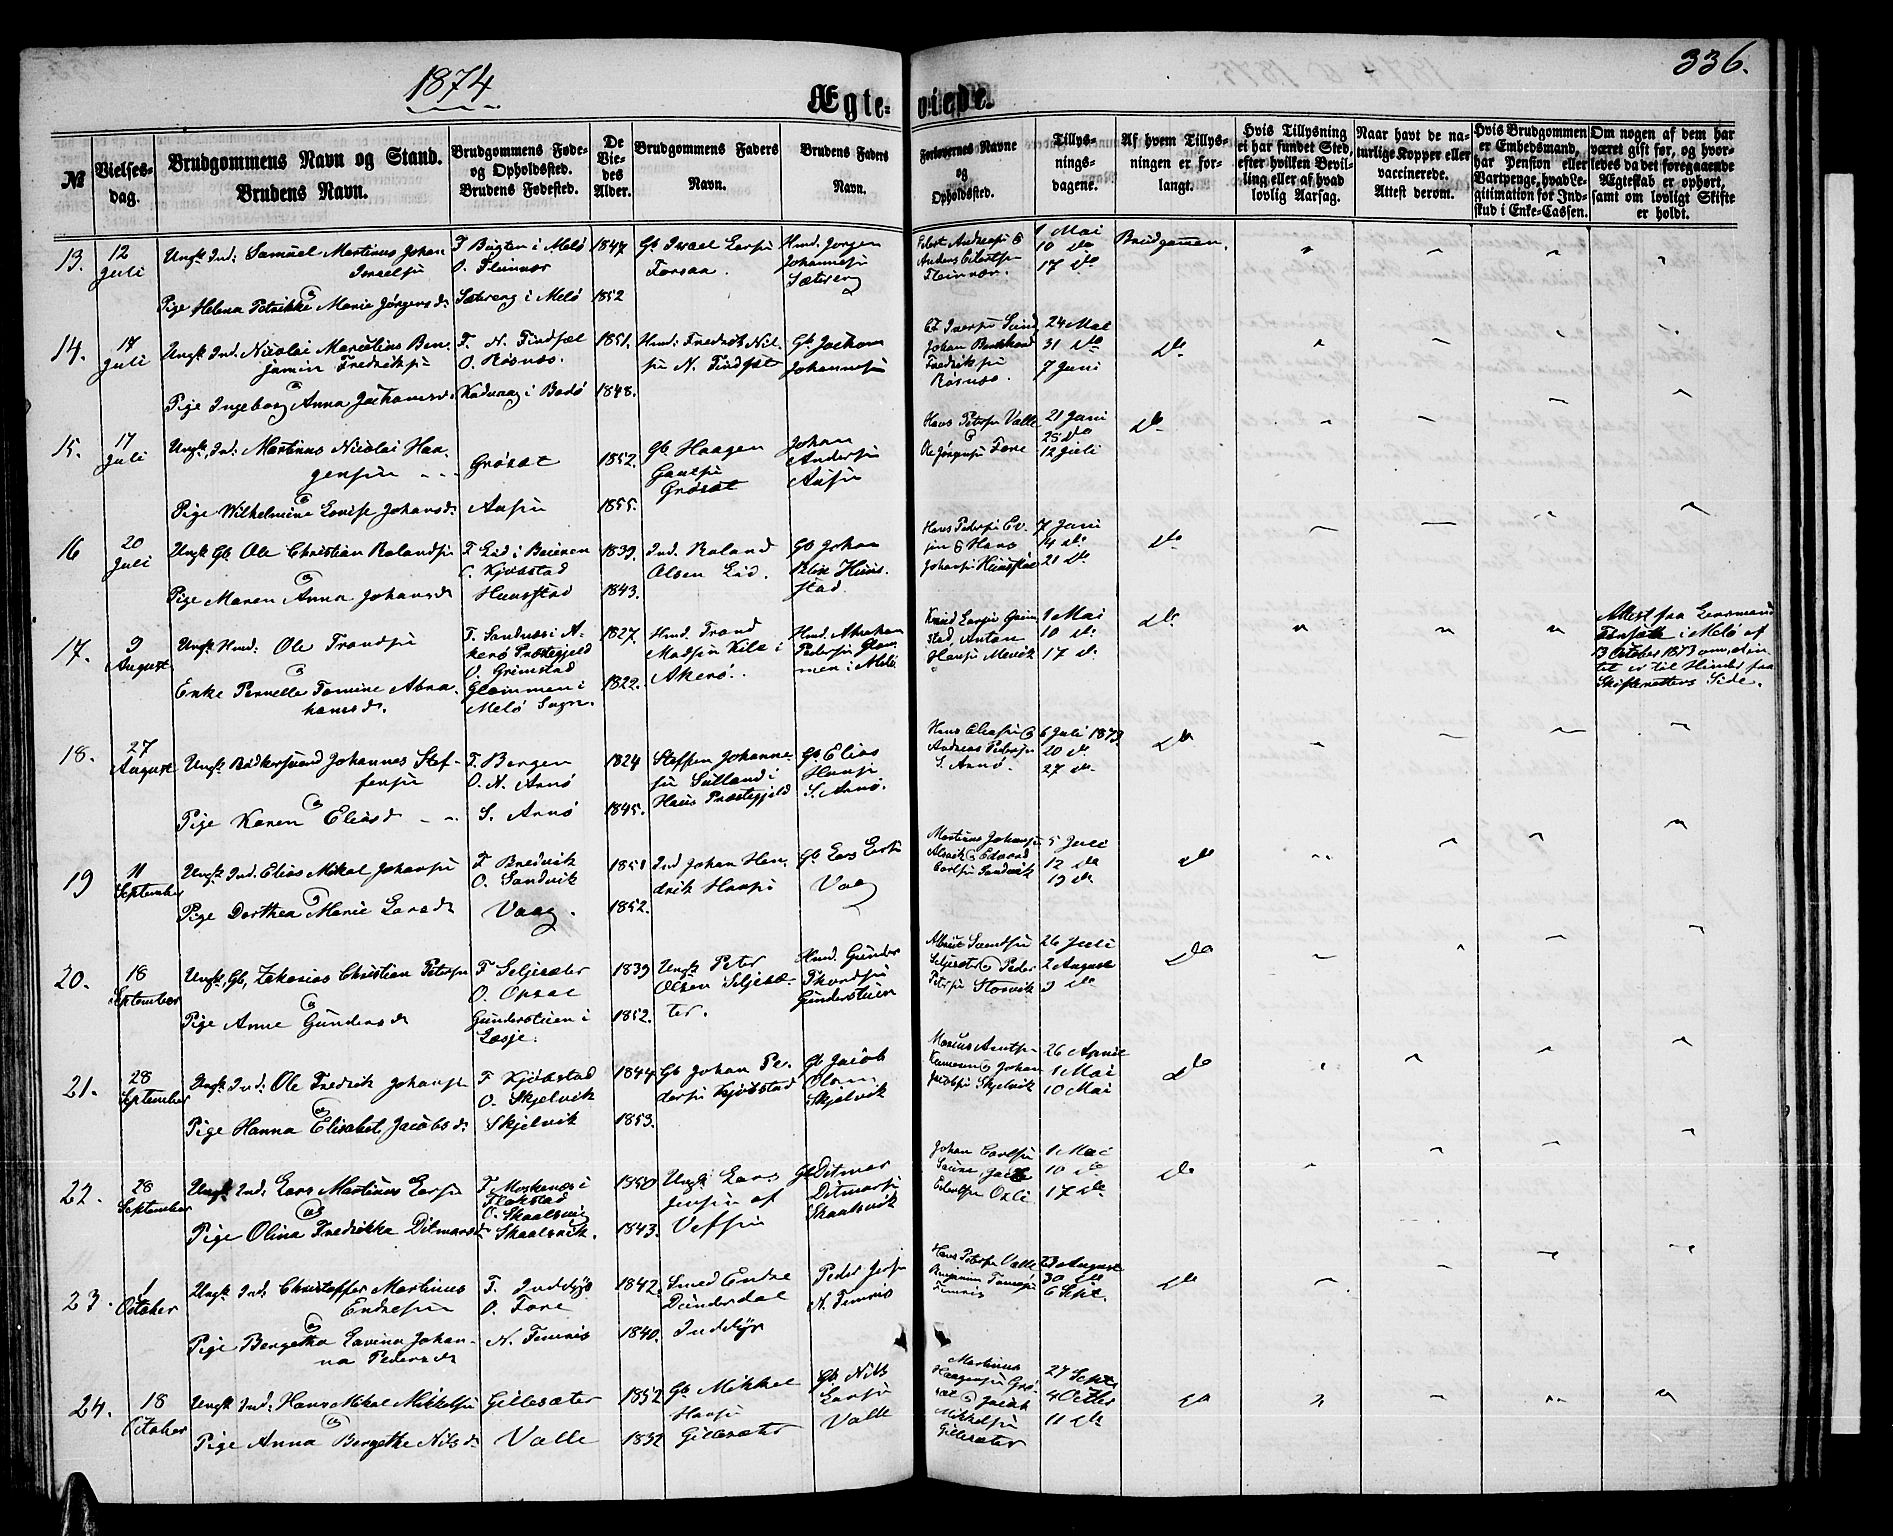 1874
336.
Ægteviede.
№
Vielses-
dag.
Brudgommens Navn og Stand.
Brudens Navn.
Brudgommens Føde-
og Opholdssted.
Brudens Fødested.
De
Vie-
des
Alder.
Brudgommens Faders
Navn.
Brudens Faders
Navn.
Forlovernes Navne
og
Opholdssted.
Tillys-
nings-
dagene.
Af hvem Tillys-
ningen er for-
langt.
Hvis Tillysning
ei har fundet Sted,
efter hvilken Bevil-
ling eller af hvad
lovlig Aarsag.
Naar havt de na-
turlige Kopper eller
vaccinerede.
Attest derom.
Hvis Brudgommen
er Embedsmand,
har Pension eller
Vartpenge, hvad Le-
gitimation for Ind-
skud i Enke-Cassen.
Om nogen af dem har
været gift før, og hvor-
ledes da det foregaaende
Ægteskab er ophørt,
samt om lovligt Skifte
er holdt.
13.
12
Juli
Ungk. Ind: Samuel Martinus Johan
Israelsen
Pige Helena Petrikke Marie Jørgensd.
F. Bugten i Melø
O. Fleinvær
Sætereng i Melø
1847
1852
Gb Israel Larsen
Forsaa.
Hmd. Jørgen
Johannesen
Sætereng
Eilert Andreasen &
Anders Eilertsen
Fleinvær.
1 Mai
10 do
17 do
Brudgommen.
14.
17
Juli
Ungk. Ind. Nicolai Marcelius Ben-
jamin Fredriksen
Pige Ingeborg Anna Jochumsd.
F. N. Findset
O. Røsnæs.
Kodvaag i Bodø
1851.
1848.
Hmd. Fredrik Nil-
sen N. Findset
Gb. Jochum
Johannesen
Johan Bernhard
Fredriksen
Røsnæs.
24 Mai
31 do
7 Juni
do
15.
17
Juli
Ungk. Ind: Martinus Nicolai Haa-
gensen
Pige Wilhelmine Lovise Johansd.
Grøsæt
Aasen
1852.
1855.
Gb. Haagen
Grøsæt
Johan
Andersen
Aasen
Hans Petersen Valle
&
Ole Jørgensen Fore
21 Juni
28 do
12 Juli
do
16
20
Juli
Ungk. Gb. Ole Christian Rolandsen
Pige Maren Anna Johansd.
F. Lid i Beieren
O. Kjøbstad
Hunstad
1839.
1843.
Ind. Roland
Olsen Lid.
Gb Johan
Huns-
stad.
Hans Pedersen Ev-
jen & Hans
Johansen Hunstad
7 Juni
14 do
21 do
do
17.
9
August
Ungk. Hmd: Ole Trondsen
Enke Pernelle Tomine Abra-
hamsd.
F. Sandnæs i A-
kerø Præstegjeld
O. Grimstad
Glommen i
Melø Sogn.
1827.
1822.
Hmd. Trond
Madsen Kile i
Akerø.
Hmd. Abraham
Pedersen Glom-
men i Melø
Knud Larsen Grim-
stad Anton
Hansen Mevik
1 Mai
10 do
17 do
do
Attest fra Lensmand
i Melø af
13 October 1873 om, at in-
tet er til Hinder fra
Skifterettens Side.
18.
27
August
Ungk. Bødkersvend Johannes Stef-
fensen
Pige Karen Eliasd.
F. Bergen
O. N. Arnø
S. Arnø
1824
1845.
Steffen Johanne-
sen i
Haus Præstegjeld
Gb. Elias
Hansen
S. Arnø.
Hans Eliasen &
Andreas Pedersen
S. Arnø.
6 Juli 1873
20 do
27 do
do
19
11
September
Ungk. Ind. Elias Mikal Johansen
Pige Dorthea Marie Larsd.
F. Bredvik
O. Sandvik
Vaag.
1851
1852.
Ind Johan Hen-
drik Hansen
Gb. Lars
Vaag
Martinus Johansen
Alsvik & Edvard
Carlsen Sandvik
5 Juli
12 do
19 do
do
20.
18
September
Ungk. Gb. Zakarias Christian Petersen
Pige Anne Gundersd.
F. Seljesæter
O. Opsal
Gunderstuen i
Læsje.
1839
1852.
Ungk. Peter
Olsen Seljesæ-
ter.
Hmd. Gunder
Thordsen
Gunderstuen
Albrigt
Seljesæter & Peder
Petersen Storvik
26 Juli
2 August
9 do
do
21.
28
September
Ungk. Ind: Ole Fredrik Johansen
Pige Hanna Elisabet Jacobsd.
F. Kjøbstad
O. Skjelvik
Skjelvik
1844.
1853.
Gb. Johan Pe-
dersen Kjøbstad
Gb. Jacob
Olsen
Skjelvik
Johan
Jacobsen Skjelvik
26 April
1 Mai
10 Mai
do
22.
28
September
Ungk. Ind. Lars Martinus Larsen
Pige Olina Fredrikka Ditmarsd.
F. Moskenæs i
Flakstad
O. Skaalsvig
Skaalsvik.
1850
1843.
Ungk. Lars
Jensen af
Vefsen
Gb Ditmar
Ditmarsen
Skaalsvik
Johan Carlsen
1 Mai
10 do
17 do
do
23.
1
October
Ungk. Ind: Christoffer Martinus
Endresen
Pige Bergetha Lavina Johan-
na Pedersd.
F. Inddyr
O. Fore
N. Femris
1842.
1840.
Smed Endre
Dunderdal
Inddyr
Peder
N. Femris
Hans Petersen Valle
Benjamin
Femris
23 August
30 do
6 Sept.
do
24.
18
October
Ungk. Ind: Hans Mikal Mikkelsen
Pige Anna Bergethe Nilsd.
Gillesæter
Valle
1852
1832
Gb. Mikkel
Hansen
Gillesæter
Gb. Nils
Larsen
Valle
Martinus
Haagensen Grø-
sæt & Jacob
Mikkelsen
Gillesæter
27 Sept.
4 Octbr
11 do
do